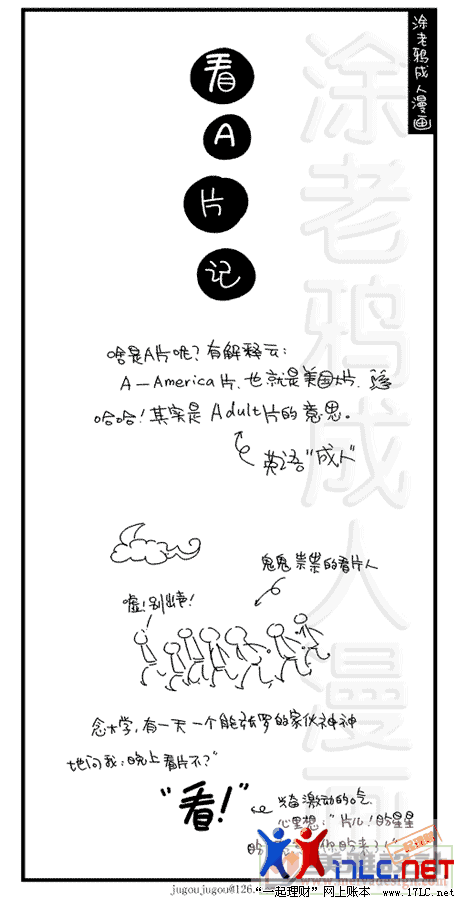 涂老鸦成人漫画
看A片记
涂老鸦成人漫画
啥是A片呢？有解释云：
A—America片，也就是美国大片，
哈哈！其实是Adult片的意思。
英语“成人”
鬼鬼祟祟的看片人
嘘！别出声！
念大学，有一天一个能张罗的家伙神神
地问我：晚上看片不？”
“看！”
兴奋激动的吃
心里想：“片儿！的星星
的
你的来了！”
17LC.net
jugoujugou@126.
“一起理财”网上账本 www.17LC.net